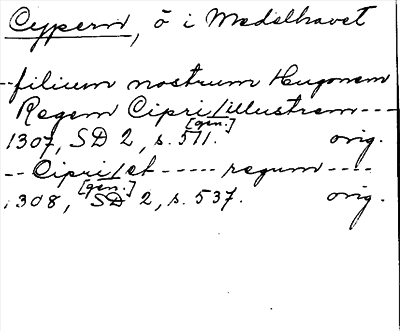 Cypern, ö i Medelhavet
--filium nostrum Hugonem
Regem Cipri/illustrem---
[gen.]
1307, SD 2, s. 571. orig.
--Cipri/et ----- regum ----
[gen.]
1308, SD 2, s. 537. orig.